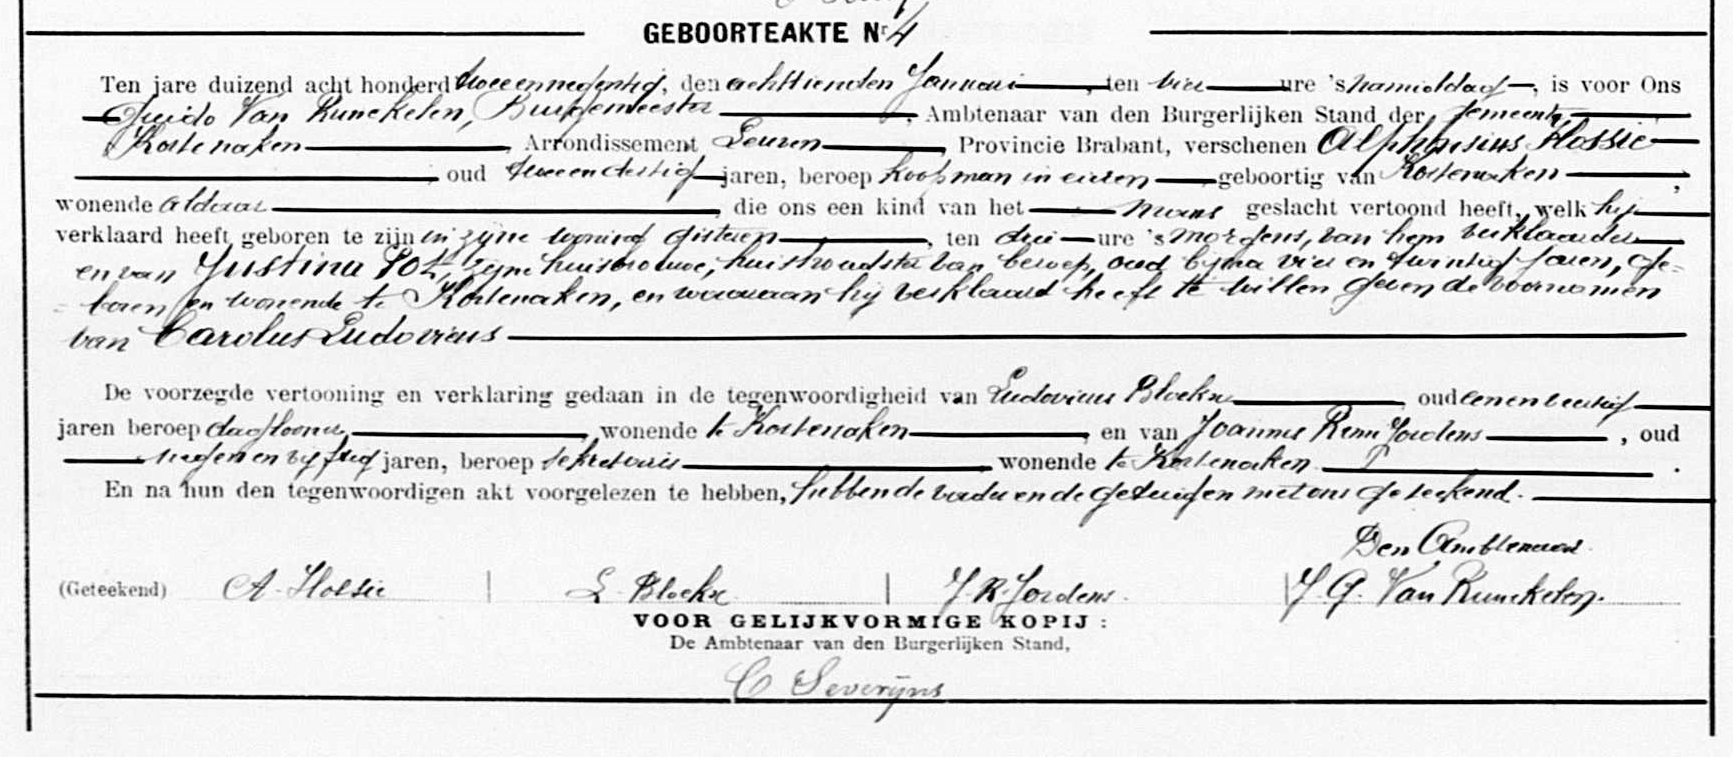 GEBOORTEAKTE Nr 4
Ten jare duizend acht honderd tweeennegentig, den achttienden Januari, ten vier ure 's namiddag, is voor Ons
Guido Van Runckelen, Burgemeester, Ambtenaar van den Burgerlijken Stand der gemeente,
Kortenaken, Arrondissement Leuven, Provincie Brabant, verschenen Alphonsius Hossie
oud tweeendertig jaren, beroep koopman in eieren geboortig van Kortenaken,
wonende aldaar, die ons een kind van het mans geslacht vertoond heeft, welk hij
verklaard heeft geboren te zijn in zyne woning gisteren, ten drie ure 's morgens, van hem verklaarder
en van Justina Pot, zyne huisvrouwe, huishoudster van beroep, oud byna vier en twintig jaren, ge-
= boren en wonende te Kortenaken, en waaraan hij verklaard heeft te willen geven de voornamen
van Carolus Ludovicus
De voorzegde vertooning en verklaring gedaan in de tegenwoordigheid van Ludovicus Blockx, oud eenenveertig
jaren beroep daglooner, wonende te Kortenaken, en van Joannes Remi Jordens, oud
negenenvijftig jaren, beroep sekretaris wonende te Kortenaken.
En na hun den tegenwoordigen akt voorgelezen te hebben, hebben de vader en de getuigen met ons geteekend.
Den Ambtenaar.
(Geteekend) A. Hossie | L. Blockx | J. R. Jordens. | J. G. Van Runckelen.
VOOR GELIJKVORMIGE KOPIJ :
De Ambtenaar van den Burgerlijken Stand,
C Severijns